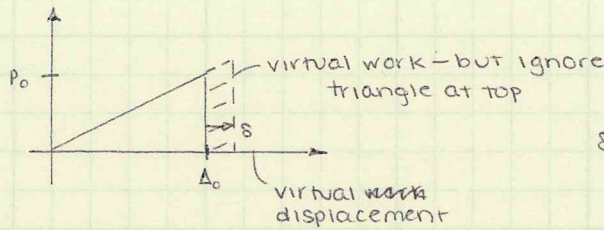 virtual work - but ignore
triangle at top
P₀
δ
Δ₀
virtual work
displacement